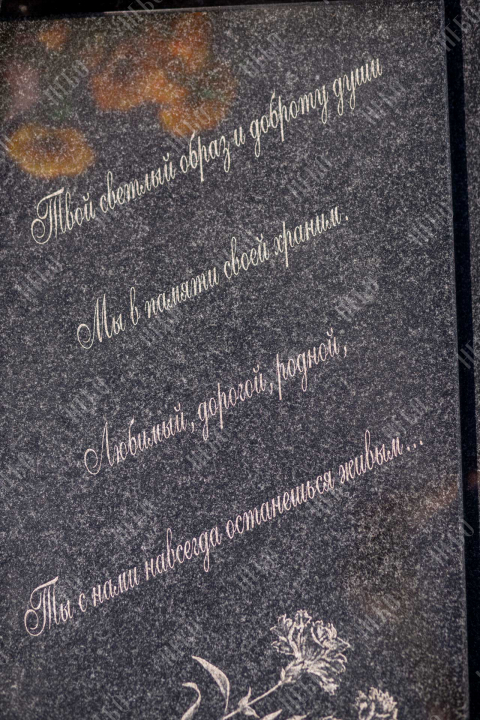 Твой светлый образ и доброту души
Мы в памяти своей храним.
Любимый, дорогой, родной,
Ты с нами навсегда останешься живым...